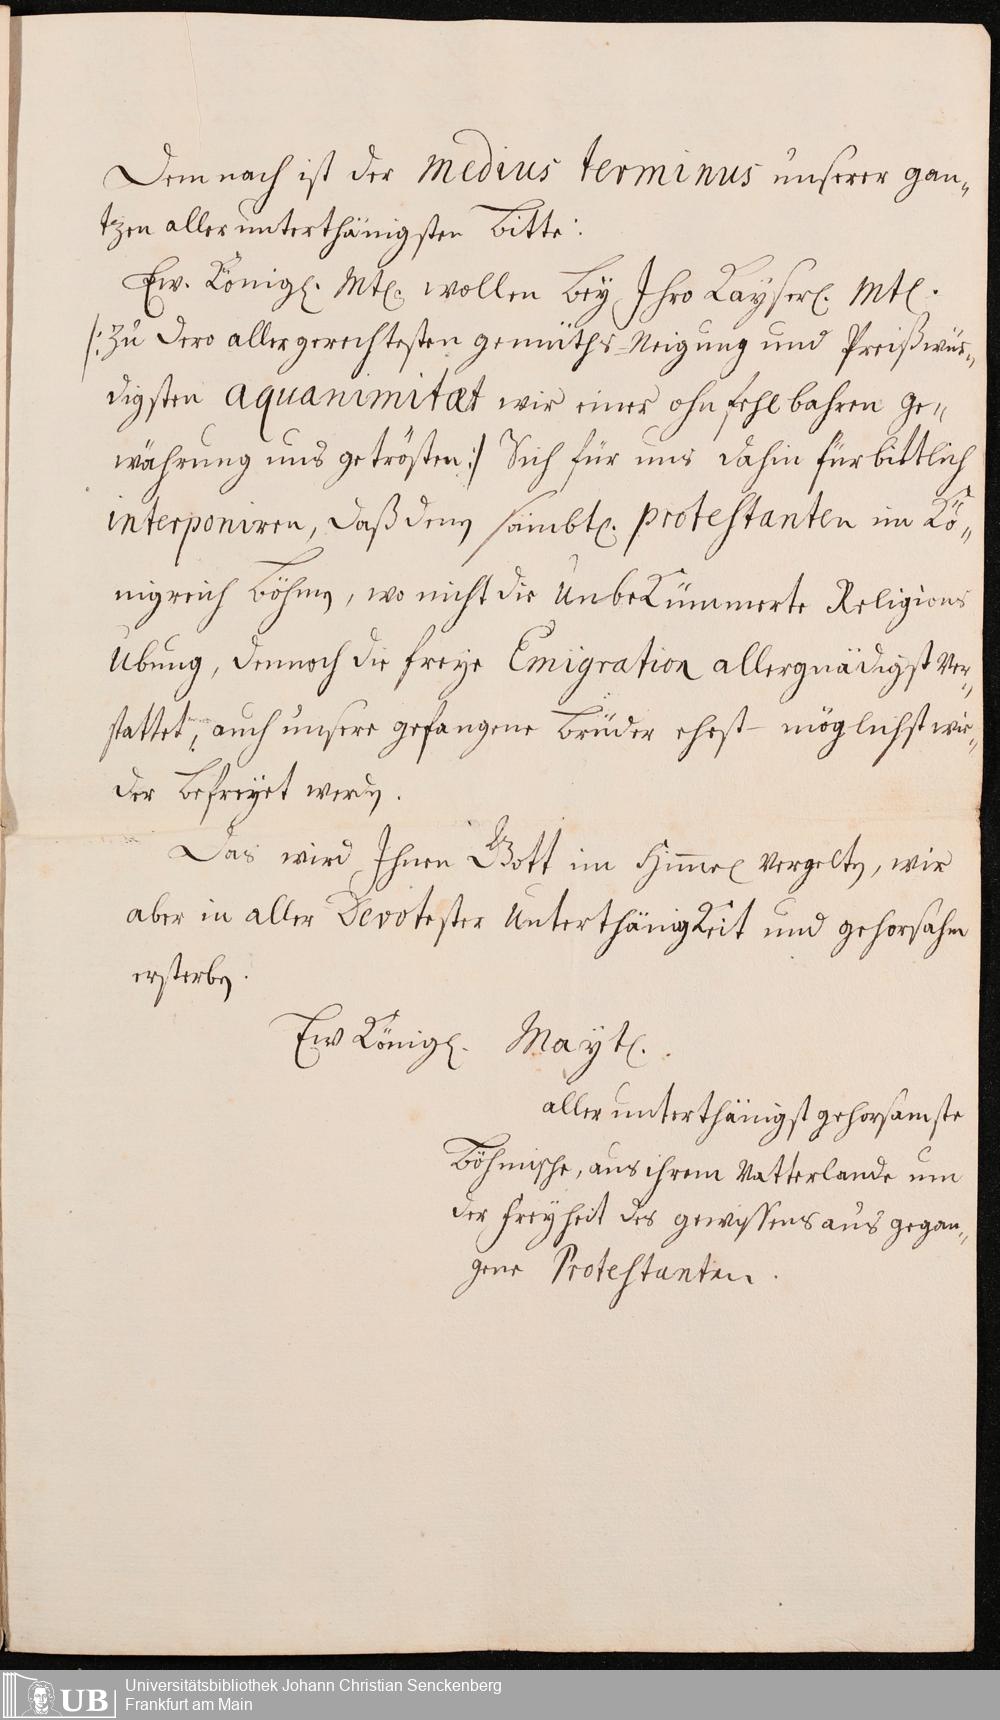 Demnach ist der Medius terminus unserer gan-
tzen allerunterthänigsten Bitte:
Ew. Königl. Mtt. wollen bey Ihro Kayserl. Mtt.
/: zu dero allergerechtesten gemüths-Neigung und Preißwür-
digsten aquanimitæt wir einer ohnfehlbahren Ge-
währung uns getrösten :/ Sich für uns dahin fürbittlich
interponiren, daß denen sämbtl. Protestanten im Kö-
nigreich Böhmen, wo nicht die Unbekümmerte Religions
Ubung, dennoch die freye Emigration allergnädigst Ver-
stattet, auch unsere gefangene Brüder ehest- möglichst wie-
der befreyet werden.
Das wird Ihnen Gott im Himel Vergelten, wir
aber in aller Devotester Unterthänigkeit und gehorsahm
ersterben.
Ew Königl. Mayt.
allerunterthänigst gehorsamste
Böhmische, aus ihrem Vatterlande um
der Freyheit des gewissens ausgegan-
gene Protestanten.
UB Universitätsbibliothek Johann Christian Senckenberg
Frankfurt am Main